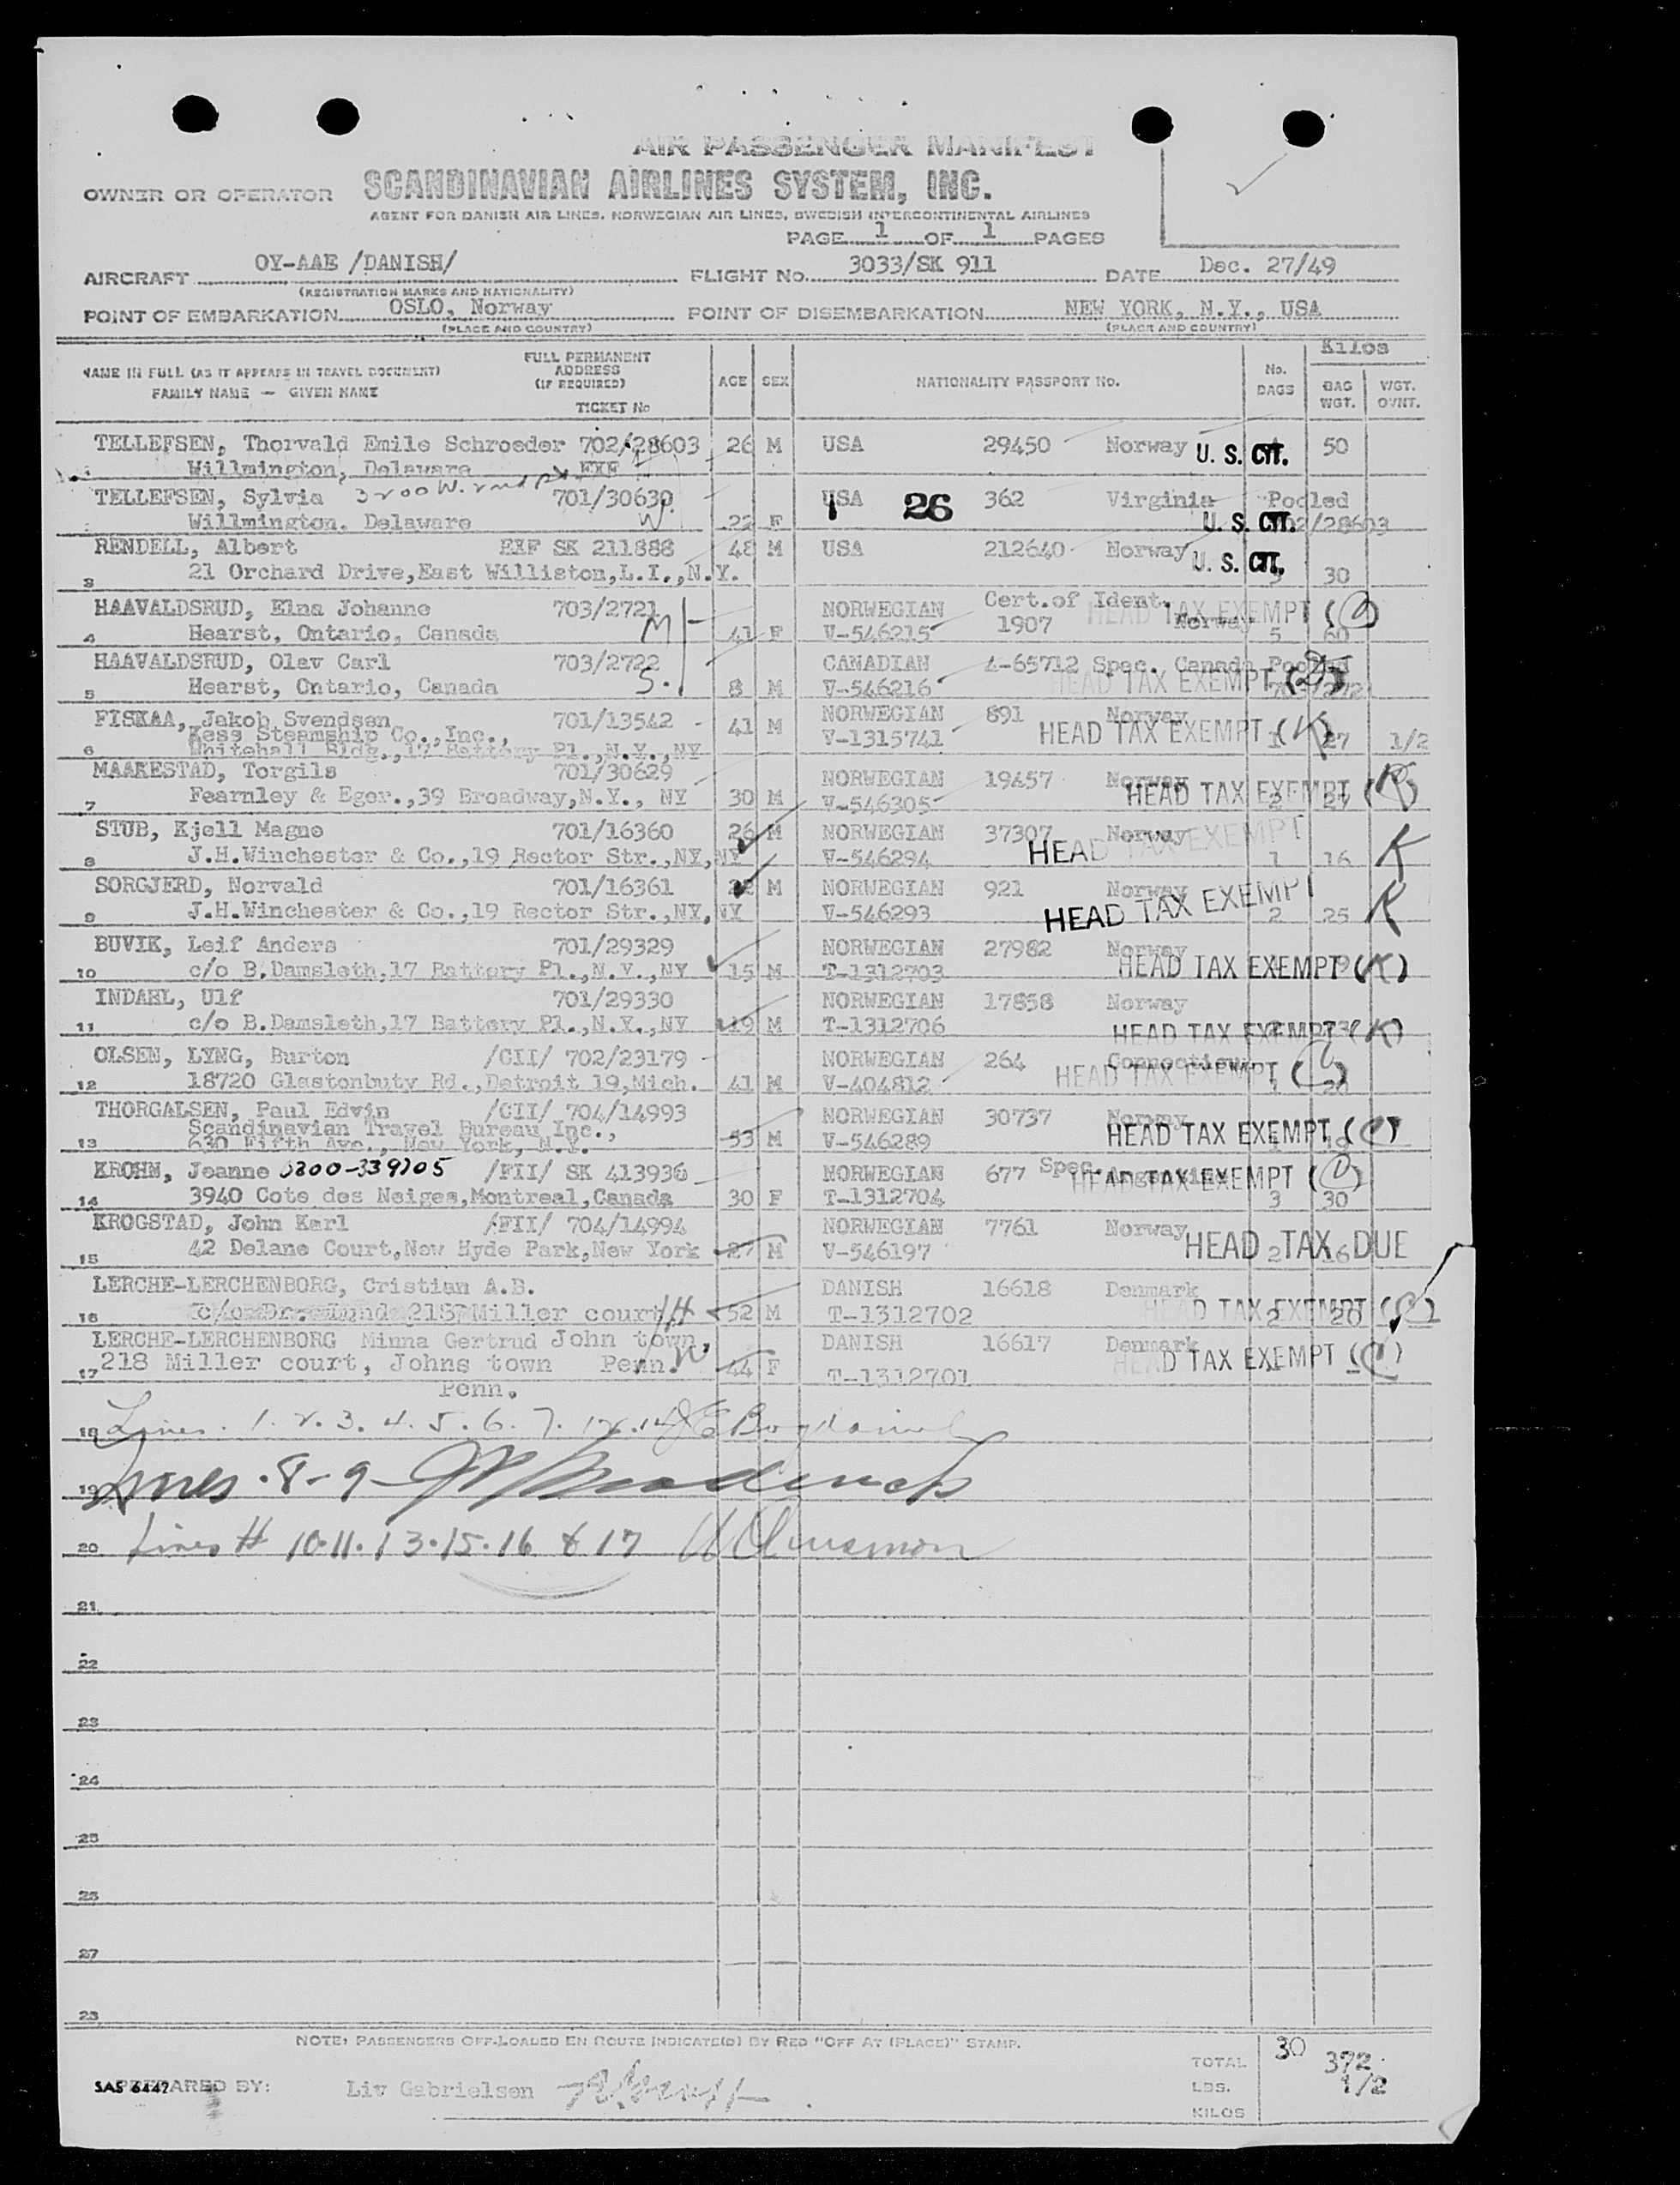 AIR PASSENGER MANIFEST
OWNER OR OPERATOR SCANDINAVIAN AIRLINES SYSTEM, INC.
AGENT FOR DANISH AIR LINES, NORWEGIAN AIR LINES, SWEDISH INTERCONTINENTAL AIRLINES
PAGE 1 OF 1 PAGES
AIRCRAFT OY-AAE /DANISH/ FLIGHT No. 3033/SK 911 DATE Dec. 27/49
(REGISTRATION MARKS AND NATIONALITY)
POINT OF EMBARKATION OSLO, Norway POINT OF DISEMBARKATION NEW YORK, N.Y., USA
(PLACE AND COUNTRY) (PLACE AND COUNTRY)
Kilos
NAME IN FULL (AS IT APPEARS IN TRAVEL DOCUMENT) FULL PERMANENT ADDRESS (IF REQUIRED) AGE SEX NATIONALITY PASSPORT No. No. BAGS BAG WGT. WGT. OVNT.
FAMILY NAME — GIVEN NAME TICKET No
TELLEFSEN, Thorvald Emile Schroeder 702/28603 26 M USA 29450 Norway U. S. CIT. 50
Willmington, Delaware EXF
TELLEFSEN, Sylvia 3200 W. 701/30630 USA 1 26 362 Virginia Pooled
Willmington. Delaware W 22 F U. S. CIT. 702/28603
RENDELL, Albert EXF SK 211888 48 M USA 212640 Norway U. S. CIT.
3 21 Orchard Drive,East Williston,L.I.,N.Y. 3 30
HAAVALDSRUD, Elna Johanne 703/2721 NORWEGIAN Cert.of Ident. HEAD TAX EXEMPT
4 Hearst, Ontario, Canada M 41 F V-546215 1907 Norway 5 60
HAAVALDSRUD, Olav Carl 703/2722 CANADIAN 4-65712 Spec. Canada Pooled
5 Hearst, Ontario, Canada S. 8 M V-546216 HEAD TAX EXEMPT
FISKAA, Jakob Svendsen 701/13542 41 M NORWEGIAN 891 Norway
Kess Steamship Co.,Inc., V-1315741 HEAD TAX EXEMPT (K) 1 27 1/2
6 Whitehall Bldg.,17 Battery Pl.,N.Y.,NY
MAAKESTAD, Torgils 701/30629 NORWEGIAN 19457 Norway
7 Fearnley & Eger.,39 Broadway,N.Y., NY 30 M V-546305 HEAD TAX EXEMPT (K)
STUB, Kjell Magne 701/16360 26 M NORWEGIAN 37307 Norway
8 J.H.Winchester & Co.,19 Rector Str.,NY,NY V-546294 HEAD TAX EXEMPT 1 16 K
SORGJERD, Norvald 701/16361 22 M NORWEGIAN 921 Norway
9 J.H.Winchester & Co.,19 Rector Str.,NY,NY V-546293 HEAD TAX EXEMPT 2 25 K
BUVIK, Leif Anders 701/29329 NORWEGIAN 27982 Norway
10 c/o B.Damsleth,17 Battery Pl.,N.Y.,NY 15 M T-1312703 HEAD TAX EXEMPT (K)
INDAHL, Ulf 701/29330 NORWEGIAN 17858 Norway
11 c/o B.Damsleth,17 Battery Pl.,N.Y.,NY 19 M T-1312706 HEAD TAX EXEMPT (K)
OLSEN, LYNG, Burton /CII/ 702/23179 NORWEGIAN 264
12 18720 Glastonbuty Rd.,Detroit 19,Mich. 41 M V-404812 HEAD TAX EXEMPT
THORGALSEN, Paul Edvin /CII/ 704/14993 NORWEGIAN 30737 Norway
Scandinavian Travel Bureau Inc., HEAD TAX EXEMPT (C)
13 630 Fifth Ave., New York, N.Y. 53 M V-546289
KROHN, Jeanne 0300-339105 /FII/ SK 413936 NORWEGIAN 677 Spec. HEAD TAX EXEMPT
14 3940 Cote des Neiges,Montreal,Canada 30 F T-1312704 3 30
KROGSTAD, John Karl /FII/ 704/14994 NORWEGIAN 7761 Norway
15 42 Delane Court,New Hyde Park,New York 27 M V-546197 HEAD TAX DUE 2 16
LERCHE-LERCHENBORG, Cristian A.B. DANISH 16618 Denmark
16 c/o Dr. Lund 218 Miller court H 52 M T-1312702 HEAD TAX EXEMPT (C) 2 20
LERCHE-LERCHENBORG Minna Gertrud John town, DANISH 16617 Denmark
17 218 Miller court, Johns town Penn. W 44 F T-1312701 HEAD TAX EXEMPT (C)
Penn.
18 Lines. 1. 2. 3. 4. 5. 6. 7. 12. 14
19 Lines. 8-9-
20 Lines # 10.11.13.15.16 & 17
21
22
23
24
25
26
27
28
NOTE: PASSENGERS OFF-LOADED EN ROUTE INDICATE(D) BY RED "OFF AT (PLACE)" STAMP.
TOTAL 30 372
LBS. 1/2
KILOS
SAS 6447 PREPARED BY: Liv Gabrielsen